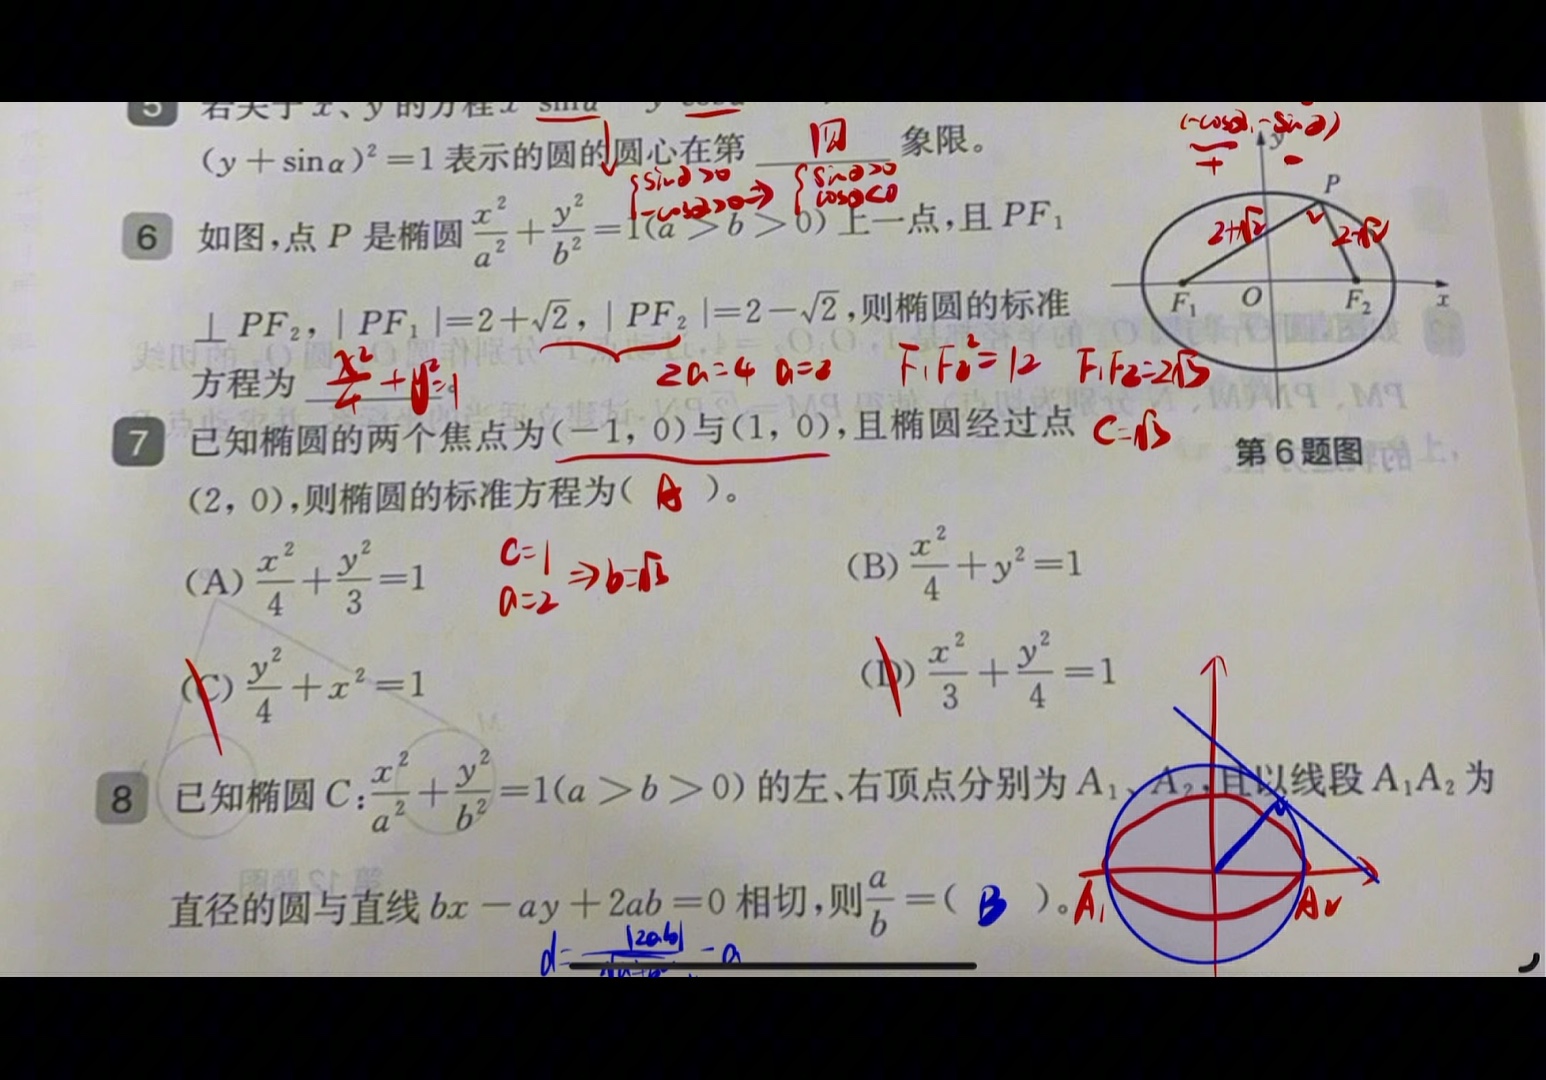 5 若关于 x、y 的方程 x² sinα − y² cosα
(y+sinα)²=1 表示的圆的圆心在第 四 象限。
(-cosα, -sinα)
+ -
{sinα>0 -cosα>0 ⇒ {sinα>0 cosα<0
6 如图,点 P 是椭圆 x²/a²+y²/b²=1(a>b>0)上一点,且 PF₁
⊥ PF₂,|PF₁|=2+√2,|PF₂|=2−√2,则椭圆的标准
方程为 x²/4+y²=1
2a=4 a=2 F₁F₂²=12 F₁F₂=2√3
C=√3
y P 2+√2 2-√2 F₁ O F₂ x
第6题图
7 已知椭圆的两个焦点为(−1, 0)与(1, 0),且椭圆经过点
(2, 0),则椭圆的标准方程为( A )。
(A) x²/4+y²/3=1 (B) x²/4+y²=1
C=1 a=2 ⇒b=√3
(C) y²/4+x²=1 (D) x²/3+y²/4=1
8 已知椭圆 C:x²/a²+y²/b²=1(a>b>0)的左、右顶点分别为 A₁、A₂,且以线段 A₁A₂ 为
直径的圆与直线 bx−ay+2ab=0 相切,则 a/b=( B )。
A₁ A₂
d=|2ab|/√a²+b² = a